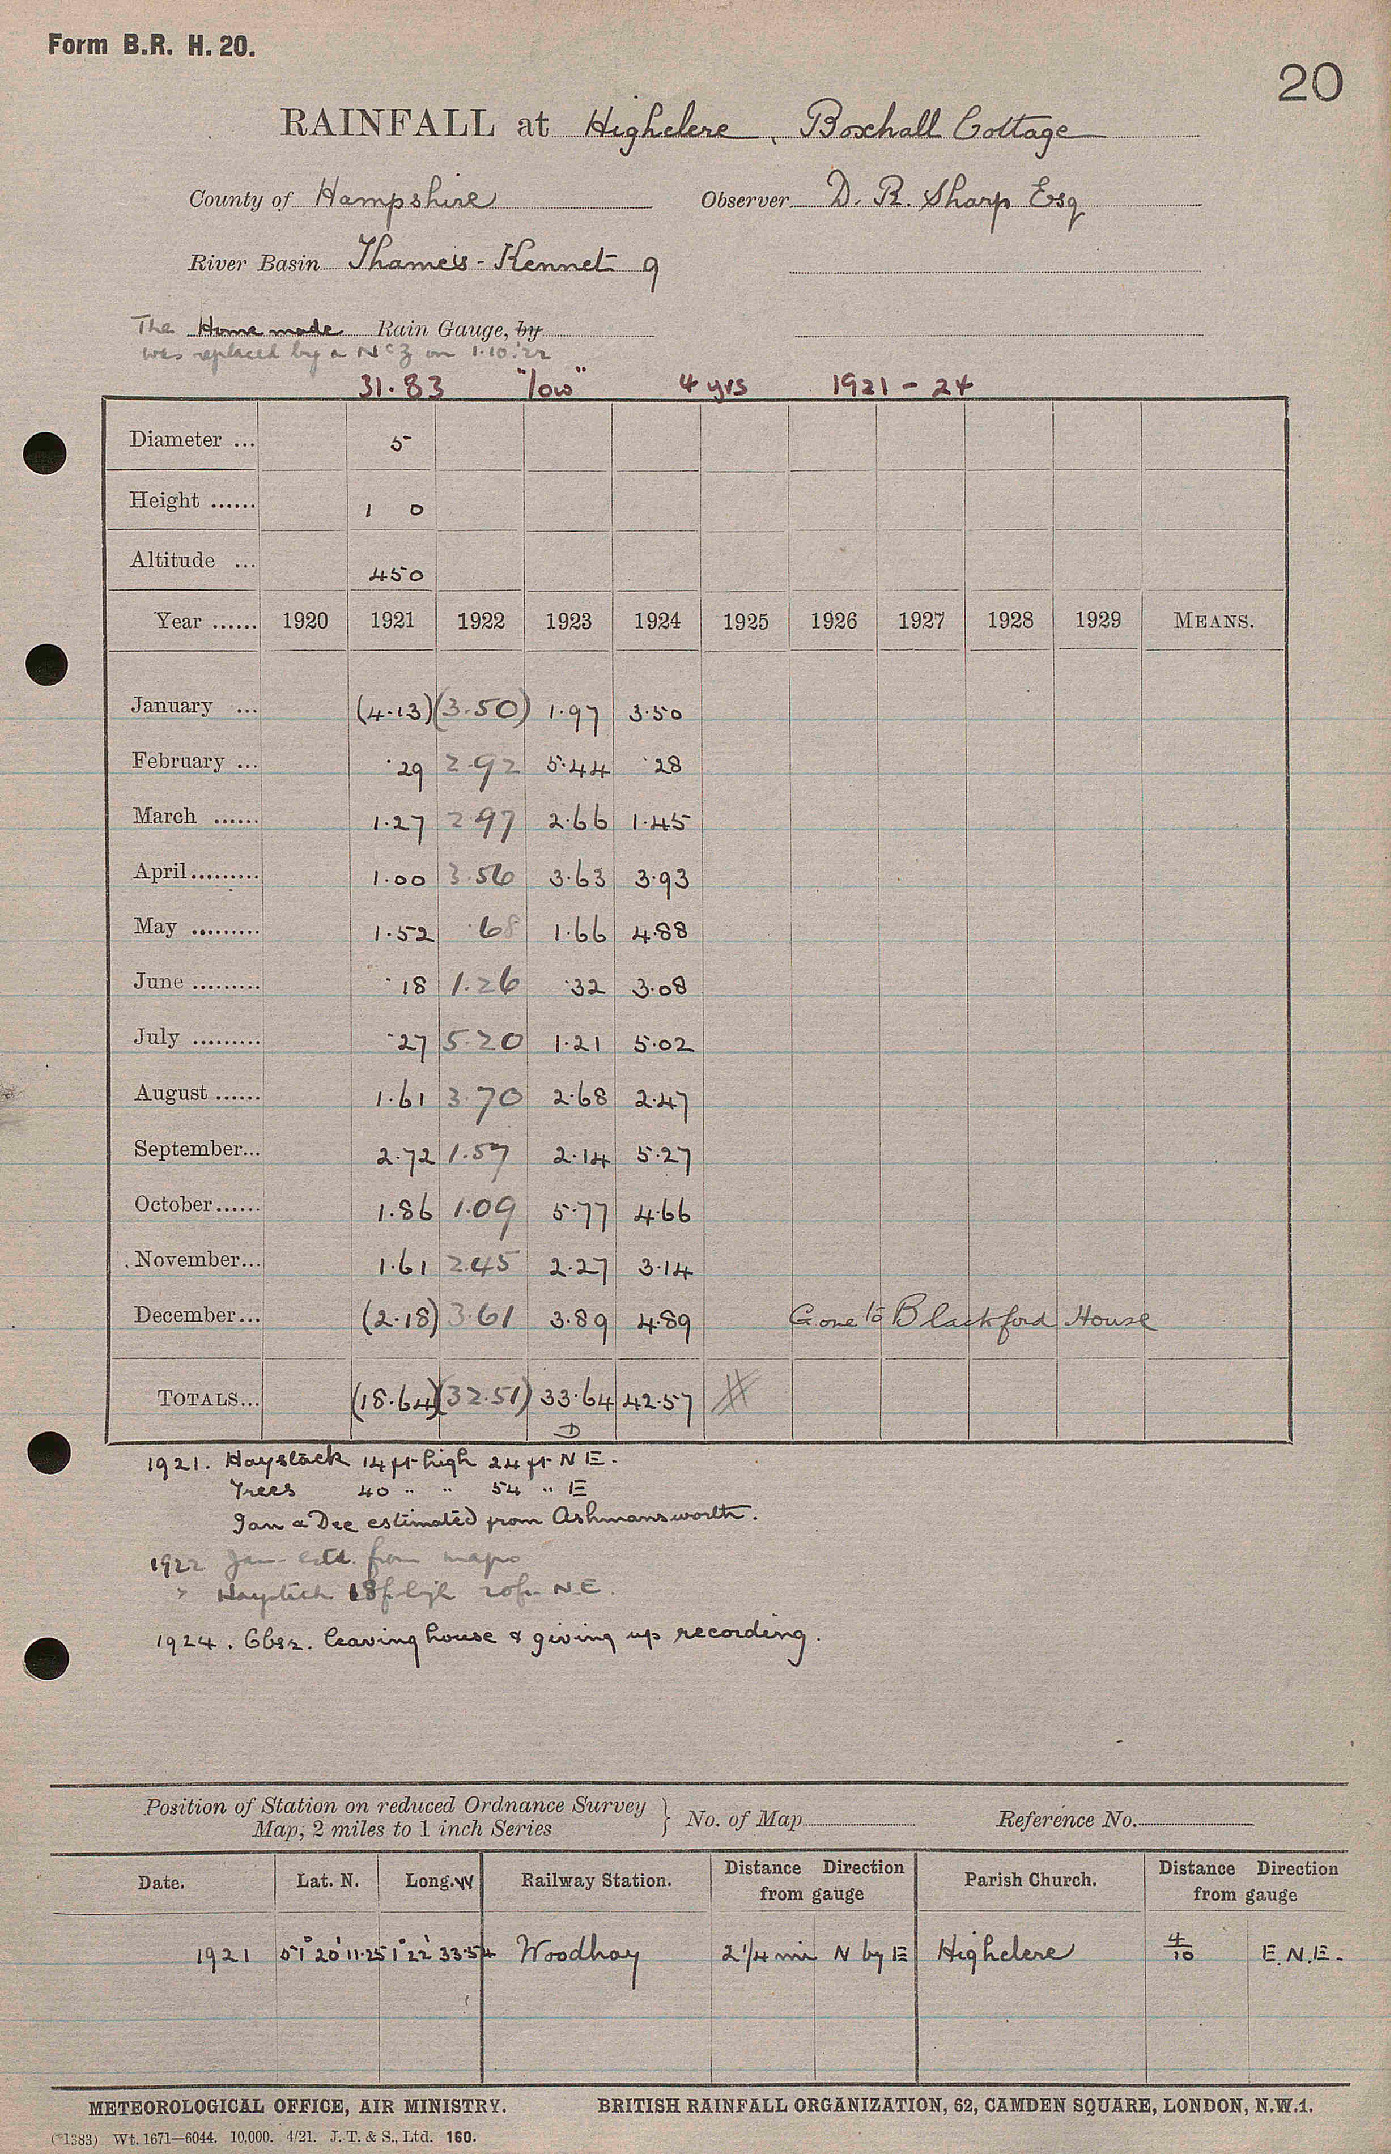 Form B.R. H. 20.
20
RAINFALL at Highclere, Boxhall Cottage
County of Hampshire Observer D. R. Sharp Esq
River Basin Thames - Kennet 9
The Home made Rain Gauge, by
was replaced by a NcZ on 1.10.'22
31.83 "low" 4 yrs 1921 - 24
Diameter ... 5
Height ...... 1 0
Altitude ... 450
Year ...... 1920 1921 1922 1923 1924 1925 1926 1927 1928 1929 MEANS.
January ... (4.13) (3.50) 1.97 3.50
February ... .29 2.92 5.44 .28
March ...... 1.27 2.97 2.66 1.45
April......... 1.00 3.56 3.63 3.93
May ......... 1.52 .68 1.66 4.88
June ......... .18 1.26 .32 3.08
July ......... .27 5.20 1.21 5.02
August ...... 1.61 3.70 2.68 2.47
September... 2.72 1.57 2.14 5.27
October...... 1.86 1.09 5.77 4.66
November... 1.61 2.45 2.27 3.14
December... (2.18) 3.61 3.89 4.89 Gone to Blackford House
TOTALS... (18.64) (32.51) 33.64 42.57 #
D
1921. Haystack 14 ft high 24 ft N E.
Trees 40 " " 54 " E
Jan & Dec estimated from Ashmansworth.
1922 Jan estd. from maps
" Haystack 18 ft high 20 ft N.E.
1924. Obsr. leaving house & giving up recording.
Position of Station on reduced Ordnance Survey Map, 2 miles to 1 inch Series } No. of Map Reference No.
Date. Lat. N. Long. W Railway Station. Distance Direction from gauge Parish Church. Distance Direction from gauge
1921 51° 20' 11.25 1° 22' 33.54 Woodhay 2 1/4 mi N by E Highclere 4/10 E.N.E.
METEOROLOGICAL OFFICE, AIR MINISTRY. BRITISH RAINFALL ORGANIZATION, 62, CAMDEN SQUARE, LONDON, N.W.1.
(*1383) Wt. 1671—6044. 10,000. 4/21. J. T. & S., Ltd. 160.